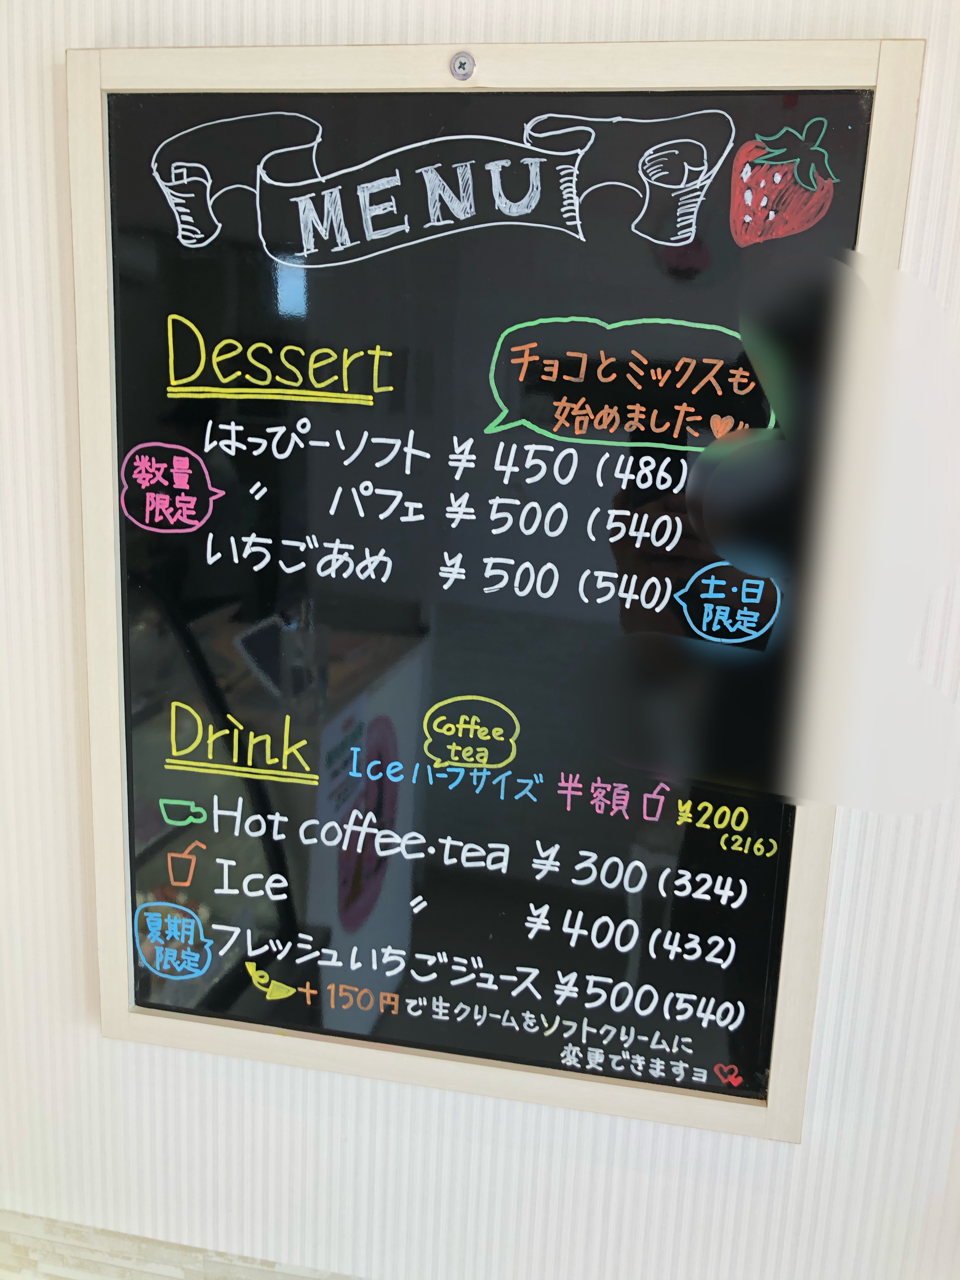 MENU
Dessert
チョコとミックスも
始めました
はっぴーソフト ¥450(486)
数量
限定
〃 パフェ ¥500(540)
いちごあめ ¥500(540)
土・日
限定
Drink
Coffee
tea
Iceハーフサイズ 半額 ¥200
(216)
Hot coffee・tea ¥300(324)
Ice 〃 ¥400(432)
夏期
限定
フレッシュいちごジュース ¥500(540)
+150円で生クリームをソフトクリームに
変更できますヨ